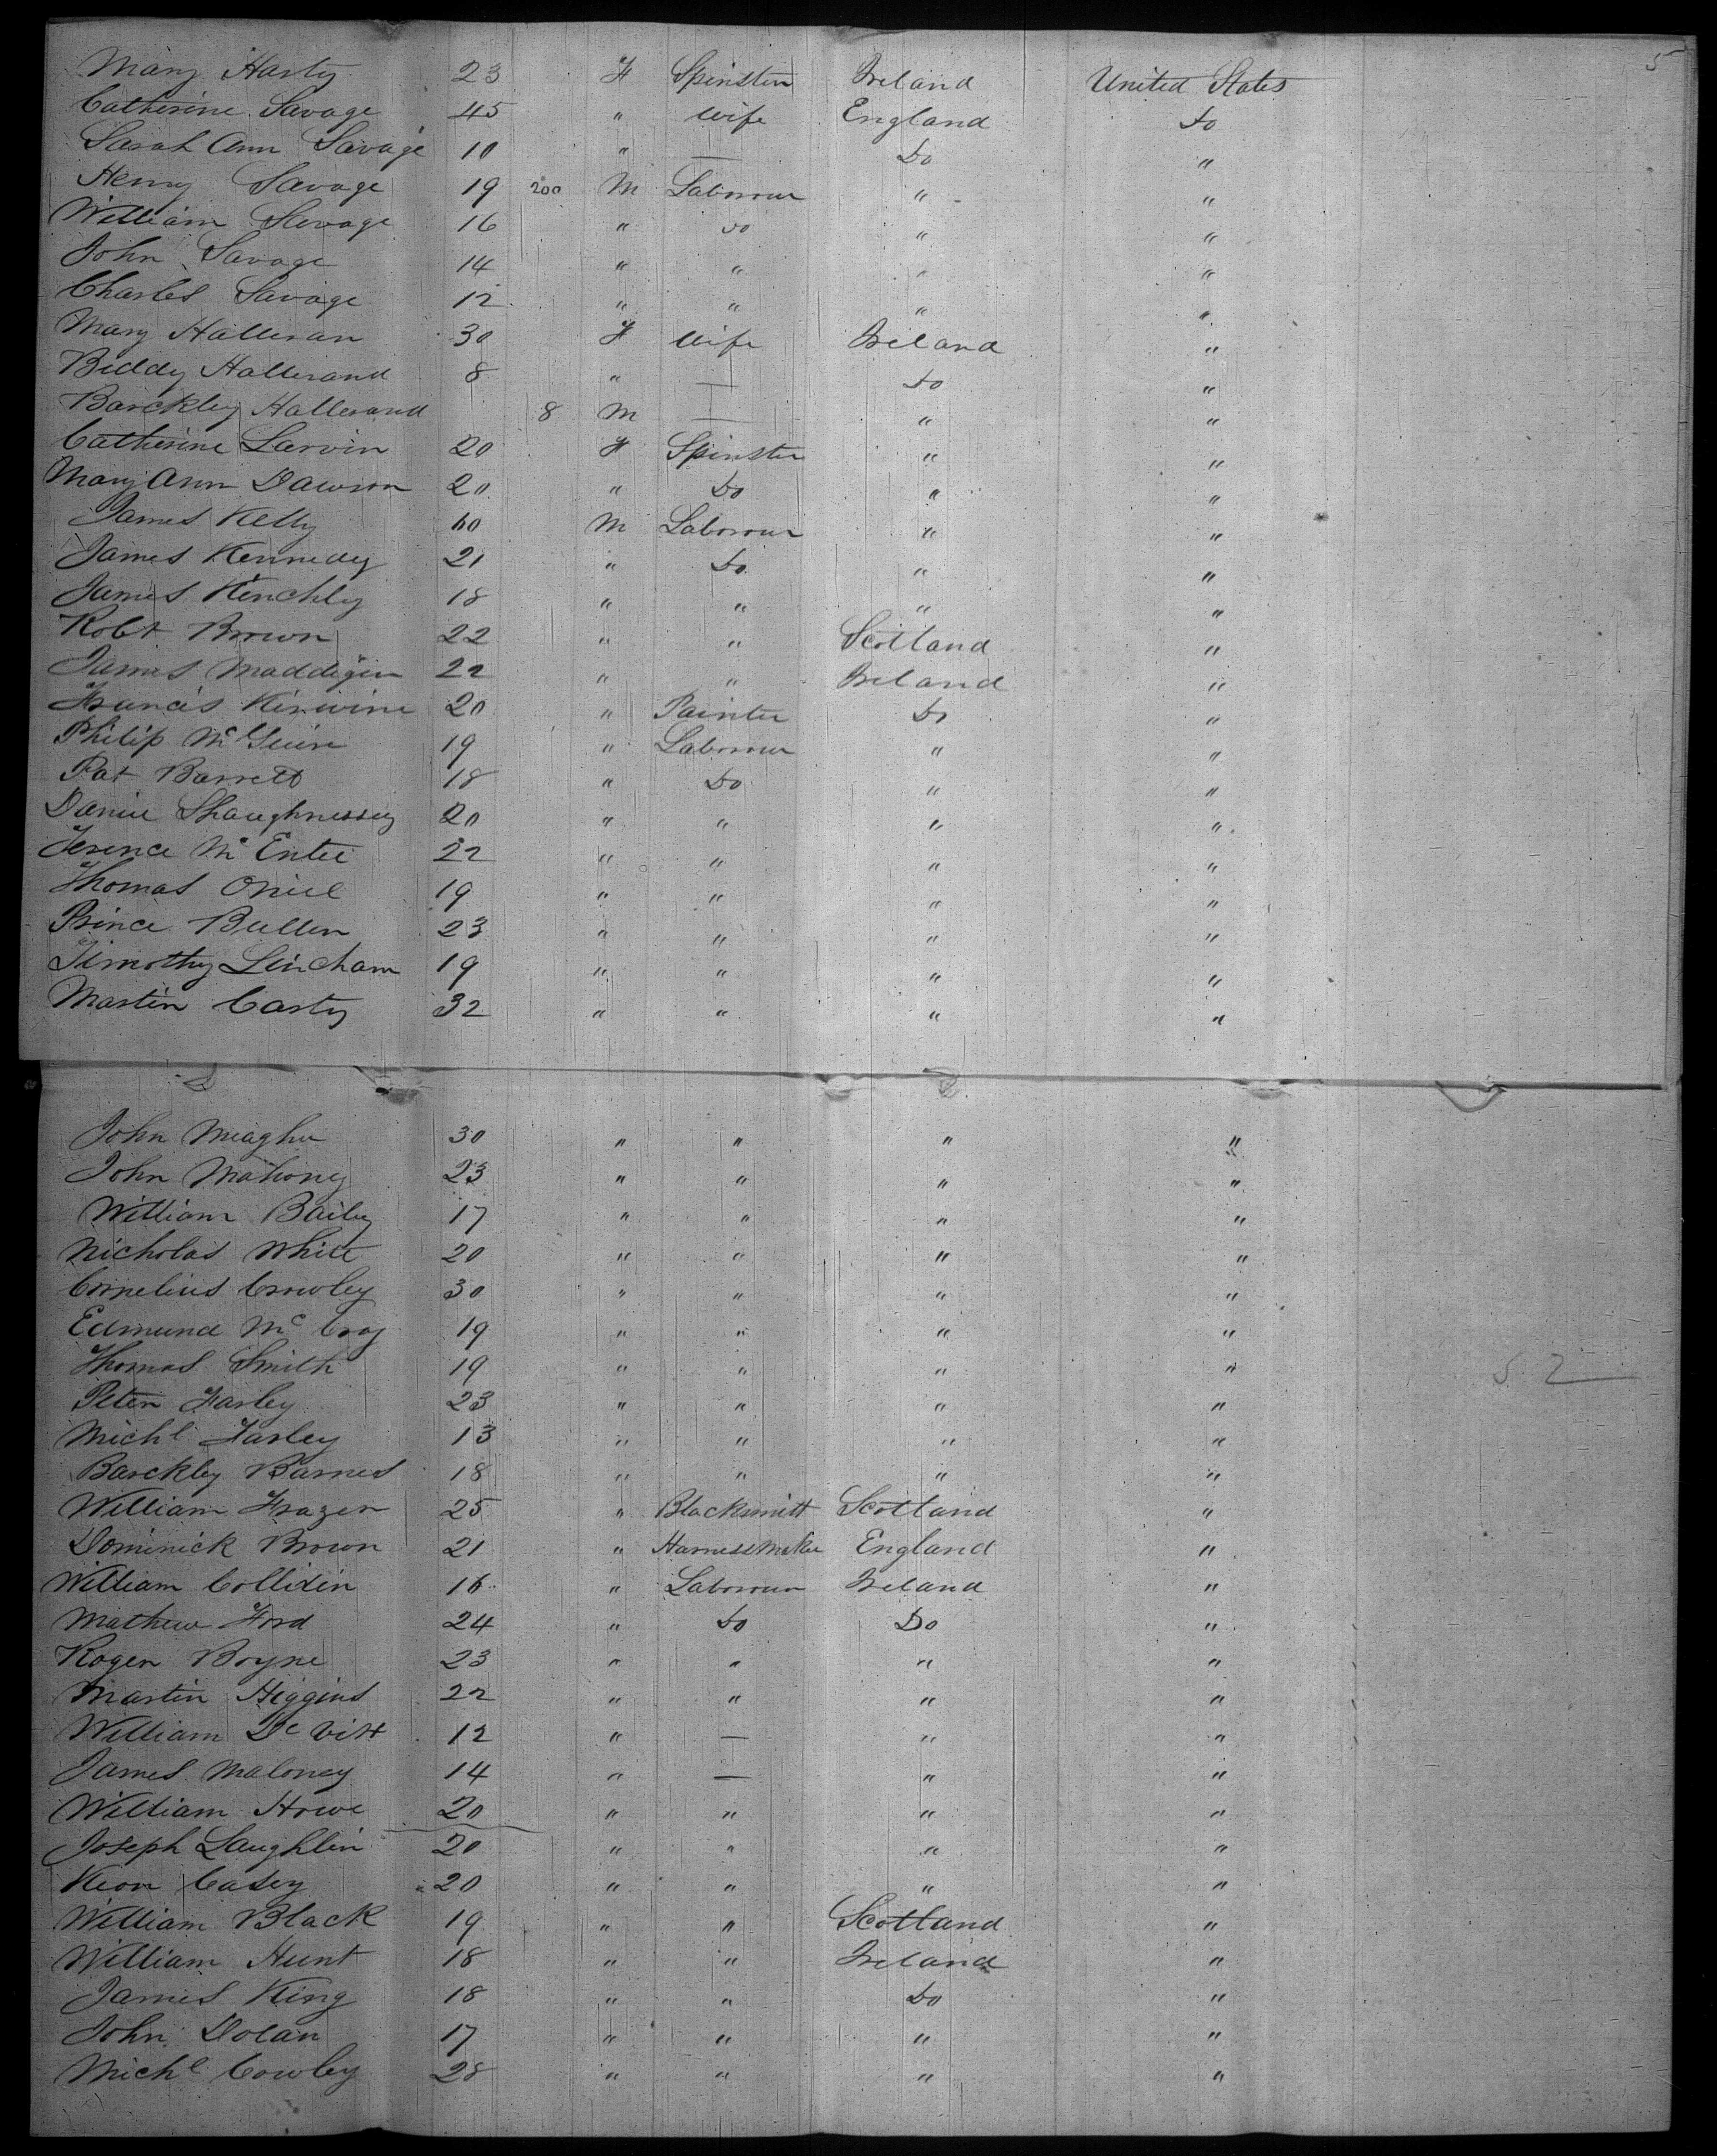 5
Mary Harty 23 F Spinster Ireland United States
Catherine Savage 45 " Wife England Do
Sarah Ann Savage 10 " — Do "
Henry Savage 19 200 M Labourer " "
William Savage 16 " Do " "
John Savage 14 " " " "
Charles Savage 12 " " " "
Mary Halleran 30 F Wife Ireland "
Biddy Hallerand 8 " — Do "
Barckley Hallerand 8 M — " "
Catherine Larvin 20 F Spinster " "
Mary Ann Dawson 20 " Do " "
James Kelly 60 M Labourer " "
James Kennedy 21 " Do " "
James Kinchly 18 " " " "
Robt Brown 22 " " Scotland "
James Maddigin 22 " " Ireland "
Francis Kirwine 20 " Painter Do "
Philip McGuire 19 " Labourer " "
Pat Barrett 18 " Do " "
Daniel Shaughnessey 20 " " " "
Terence Mc Entee 22 " " " "
Thomas Oniel 19 " " " "
Prince Bullen 23 " " " "
Timothy Lincham 19 " " " "
Martin Carty 32 " " " "
John Meagher 30 " " " "
John Mahony 23 " " " "
William Baily 17 " " " "
Nicholas White 20 " " " "
Cornelius Crowley 30 " " " "
Edmund Mc Cray 19 " " " "
Thomas Smith 19 " " " " 52
Peter Farley 23 " " " "
Michl Farley 13 " " " "
Barckley Barnes 18 " " " "
William Frazer 25 " Blacksmith Scotland "
Dominick Brown 21 " Harness Maker England "
William Collixin 16 " Labourer Ireland "
Mathew Ford 24 " Do Do "
Roger Boyne 23 " " " "
Martin Higgins 22 " " " "
William De Vitt 12 " — " "
James Maloney 14 " — " "
William Howe 20 " " " "
Joseph Laughlin 20 " " " "
Keon Casey 20 " " " "
William Black 19 " " Scotland "
William Hunt 18 " " Ireland "
James King 18 " " Do "
John Dolan 17 " " " "
Michl Cowley 28 " " " "